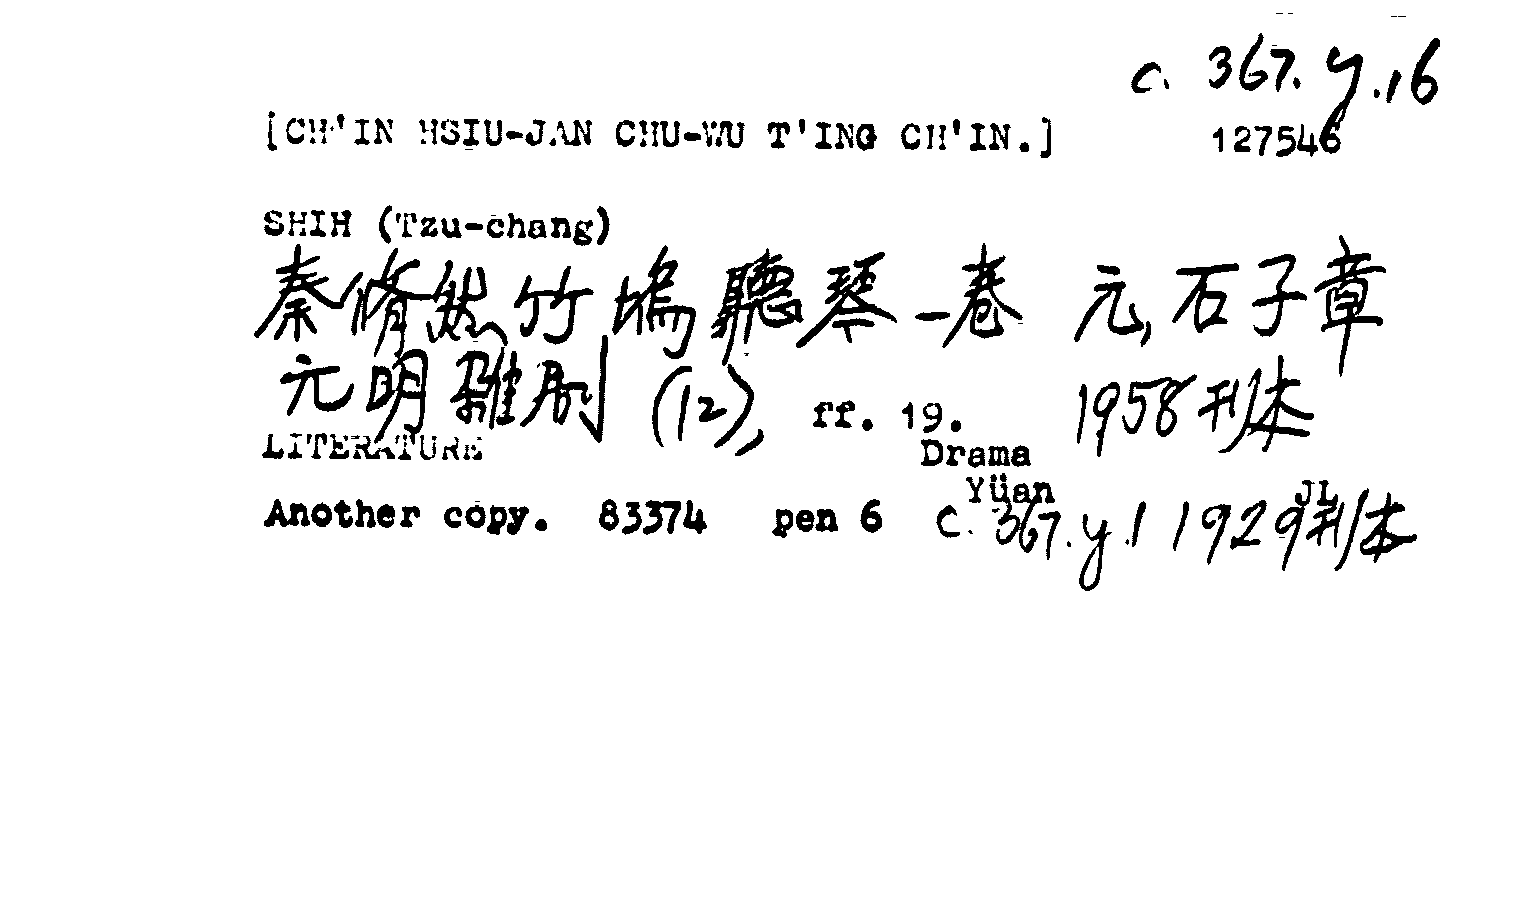 c. 367.y.16
[CH'IN HSIU-JAN CHU-WU T'ING CH'IN.] 127546
SHIH (Tzu-chang)
秦脩然竹塢聽琴一卷 元,石子章
元明雜劇 (12), ff. 19. 1958刊本
LITERATURE Drama
Yüan JL
Another copy. 83374 pen 6 C. 367.y.1 1929刊本